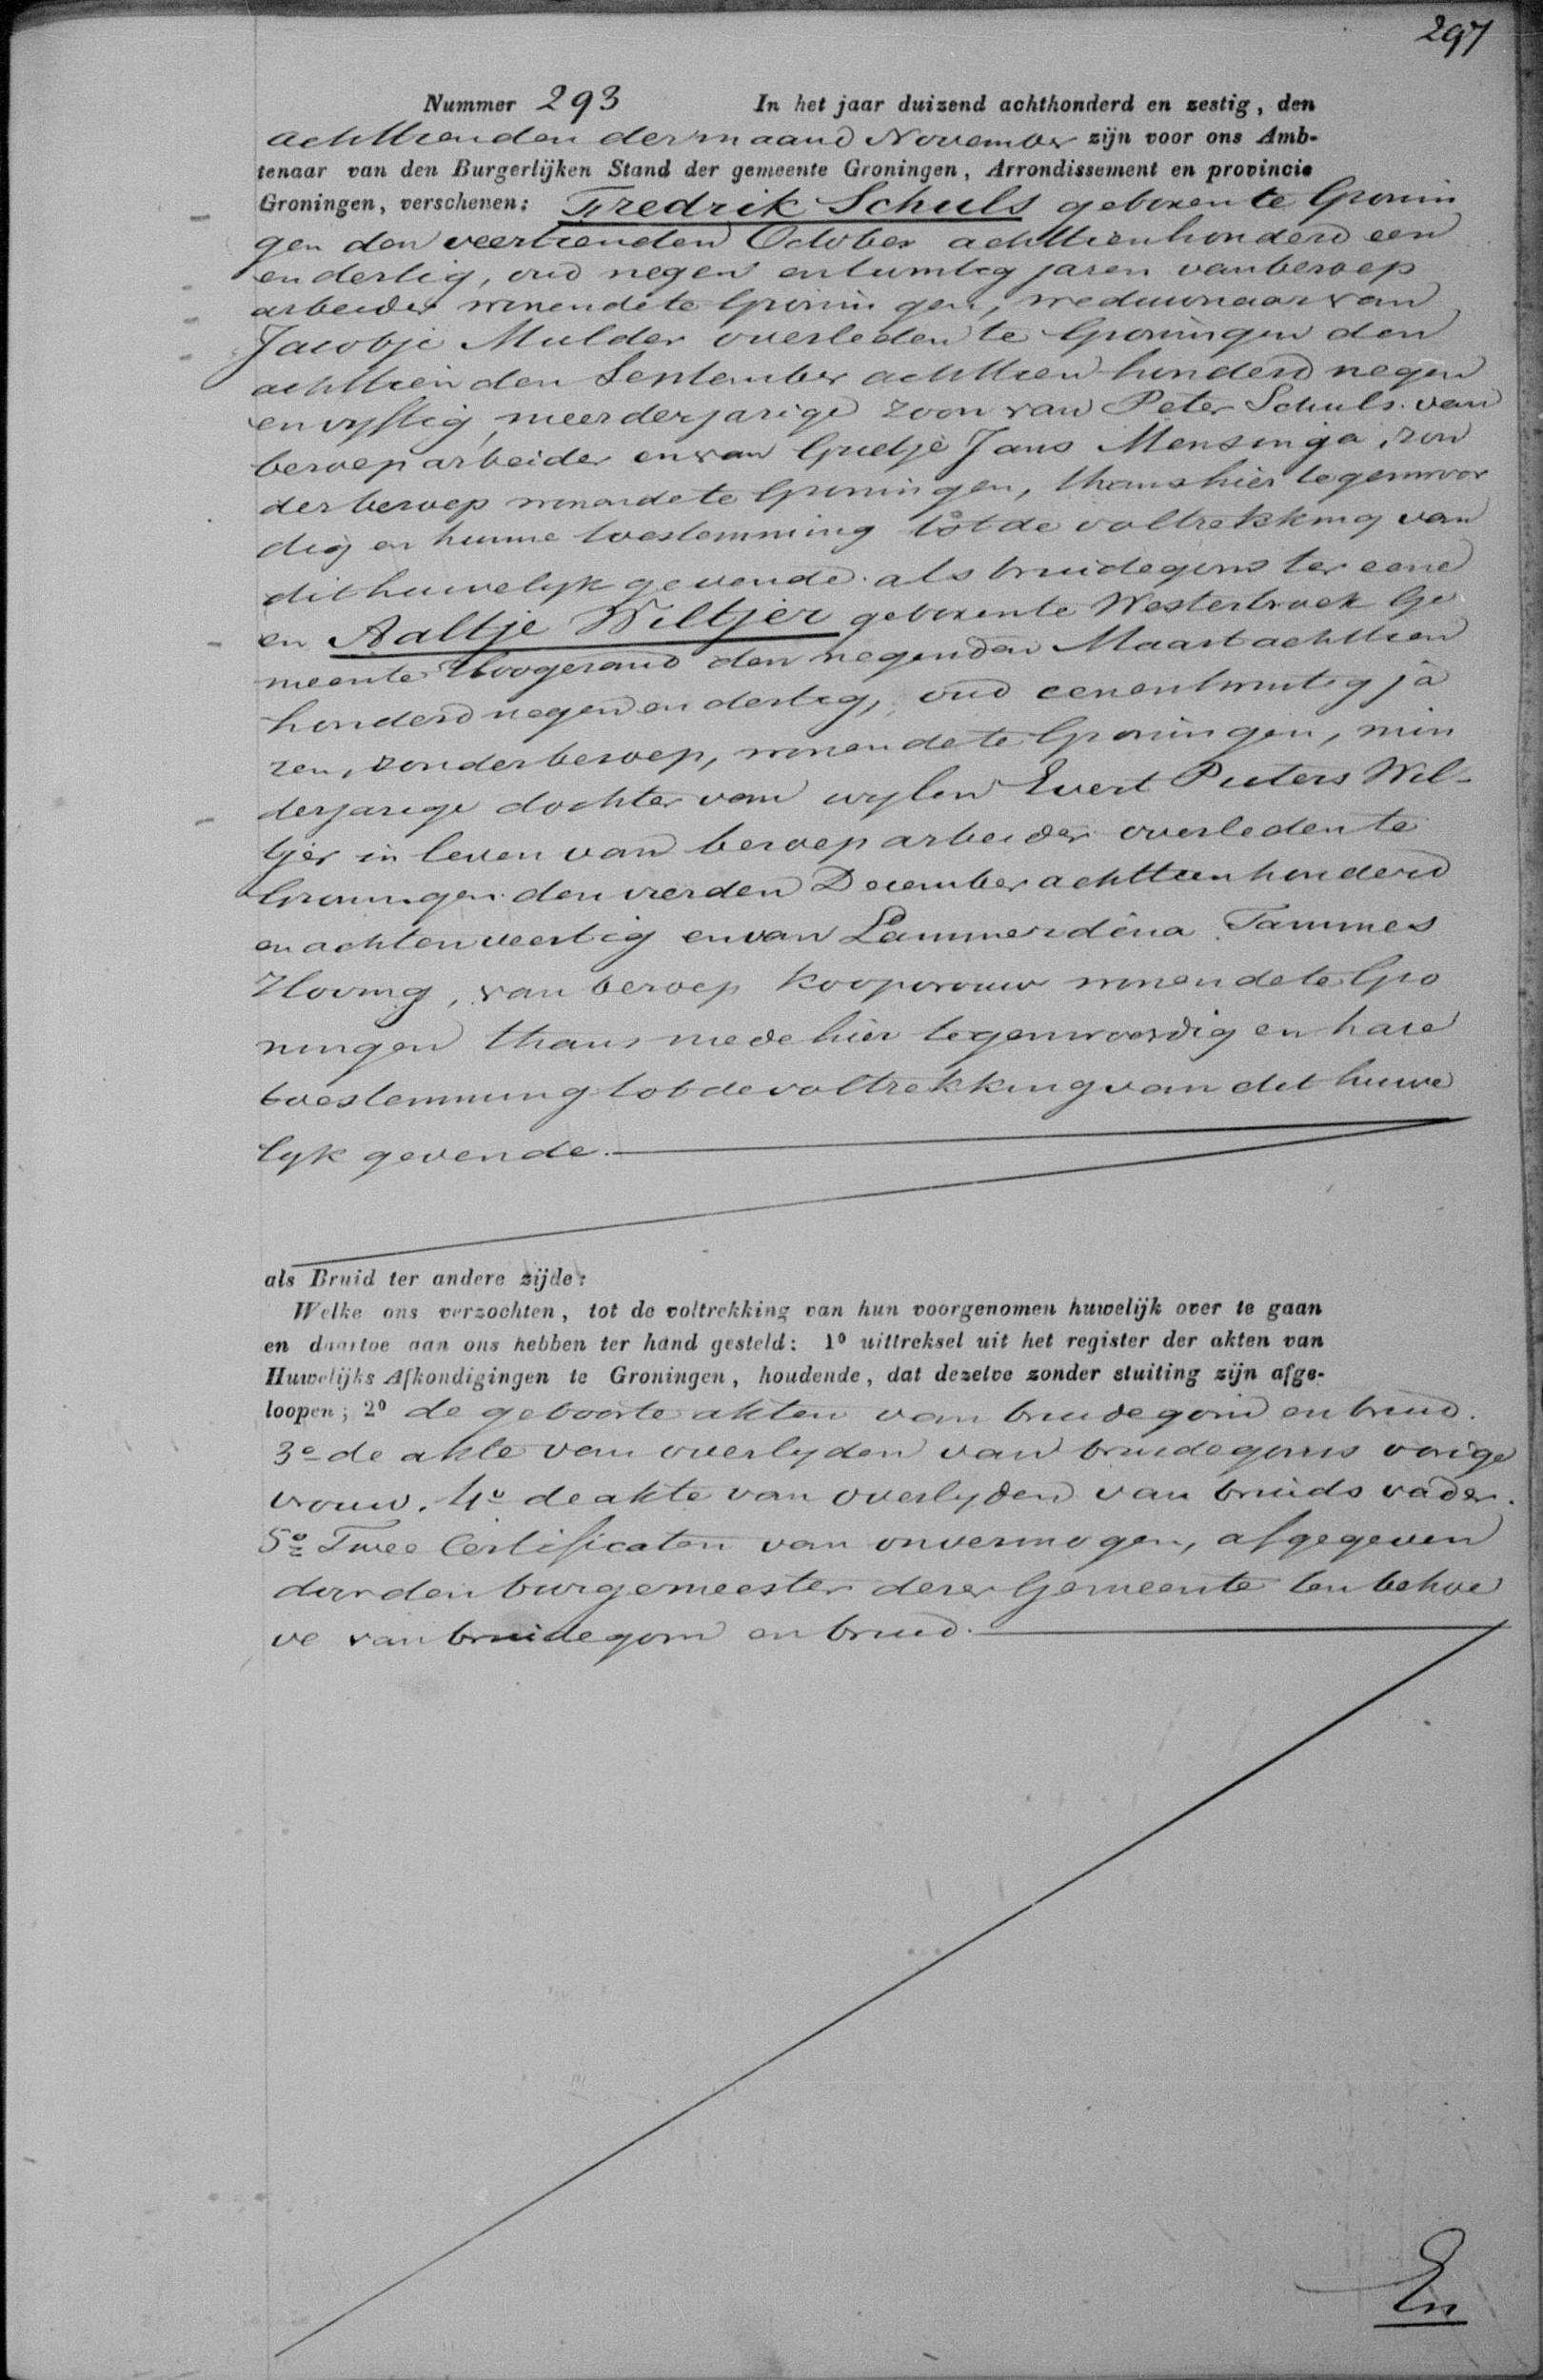 297
Nummer 293 In het jaar duizend achthonderd en zestig, den
achttienden der maand November zijn voor ons Amb-
tenaar van den Burgerlijken Stand der gemeente Groningen, Arrondissement en provincie
Groningen, verschenen: Fredrik Schuls geboren te Gronin
gen den veertienden October achttienhonderd een
en dertig, oud negen en twintig jaren van beroep
arbeider wonende te Groningen, weduwnaar van
Jacobje Mulder overleden te Groningen den
achttienden September achttien honderd negen
en vyftig, meerderjarige zoon van Peter Schuls van
beroep arbeider en van Grietje Jans Mensinga, zon
der beroep wonende te Groningen, thans hier tegenwoor
dig en hunne toestemming tot de voltrekking van
dit huwelyk gevende als bruidegom ter eene
en Aaltje Wiltjer geboren te Westerbroek Ge
meente Hoogezand den negenden Maart achttien
honderd negen en dertig, oud een en twintig ja
ren, zonder beroep, wonende te Groningen, min
derjarige dochter van wylen Evert Pieters Wil-
tjer in leven van beroep arbeider overleden te
Groningen den vierden December achttienhonderd
en achtenveertig en van Lammerdina Tammes
Hoving, van beroep koopvrouw wonende te Gro
ningen thans mede hier tegenwoordig en hare
toestemming tot de voltrekking van dit huwe
lyk gevende.
als Bruid ter andere zijde:
Welke ons verzochten, tot de voltrekking van hun voorgenomen huwelijk over te gaan
en daartoe aan ons hebben ter hand gesteld: 1º uittreksel uit het register der akten van
Huwelijks Afkondigingen te Groningen, houdende, dat dezelve zonder stuiting zijn afge-
loopen; 2º de geboorte akten van bruidegom en bruid.
3º de akte van overlyden van bruidegoms vorige
vrouw. 4º de akte van overlyden van bruids vader.
5º Twee Certificaten van onvermogen, afgegeven
door den burgemeester dezer Gemeente ten behoe
ve van bruidegom en bruid.
En